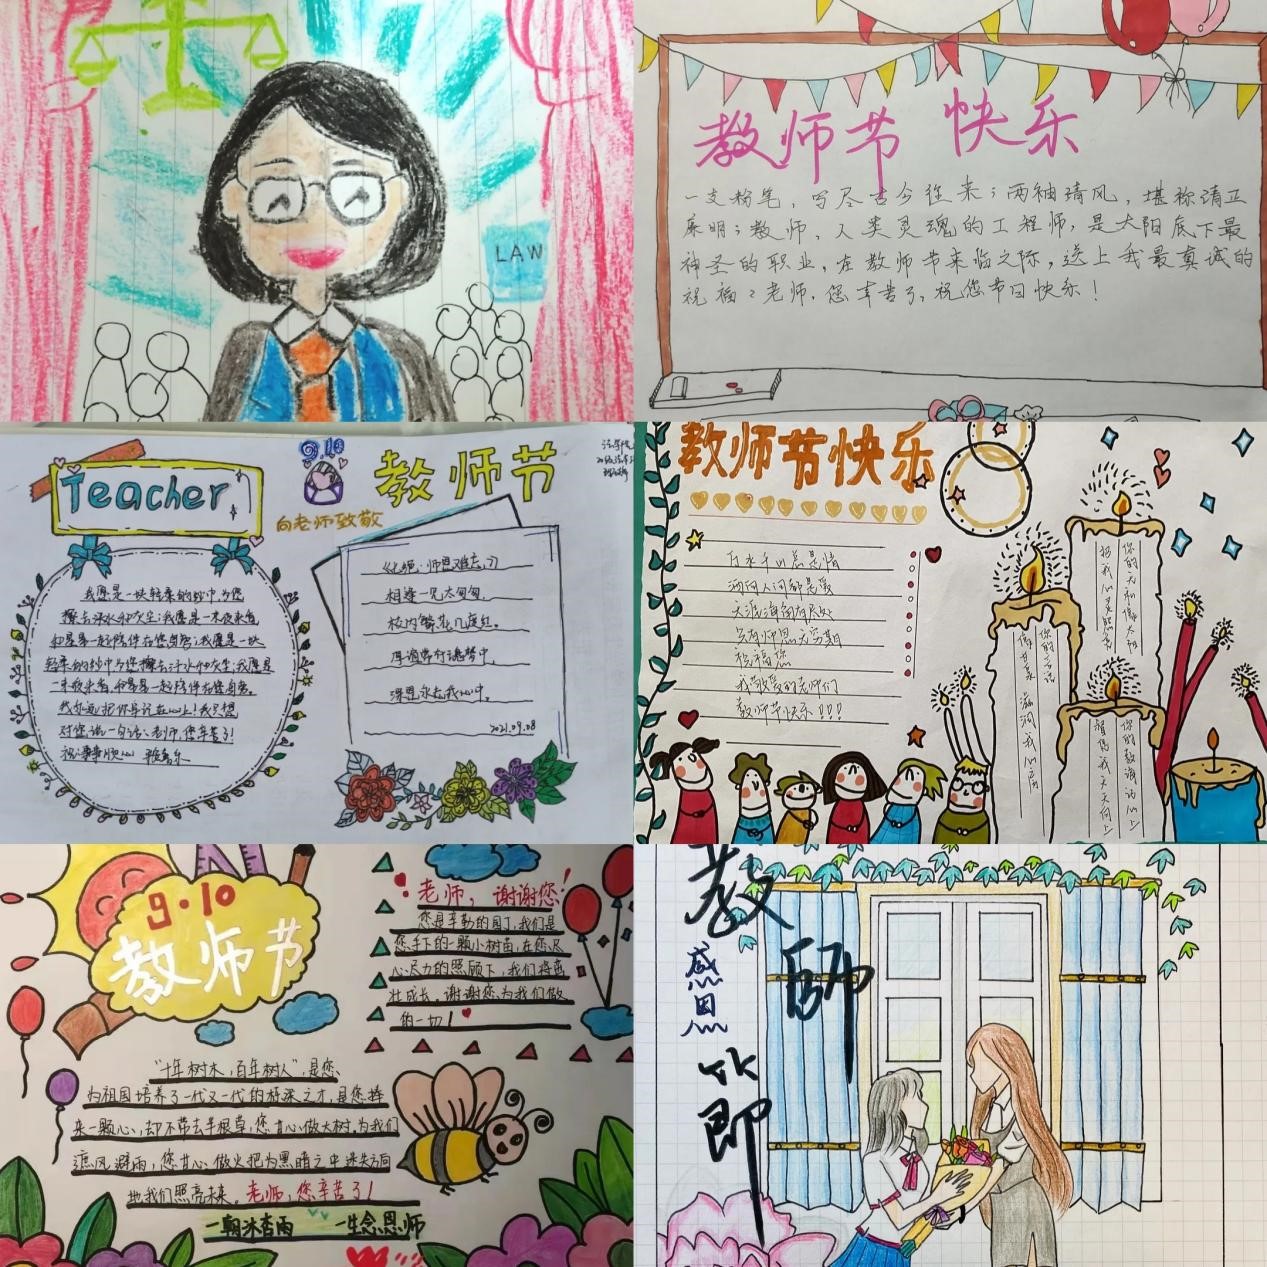 LAW
教师节快乐
一支粉笔，写尽古今往来；两袖清风，堪称清正
廉明；教师，人类灵魂的工程师，是太阳底下最
神圣的职业，在教师节来临之际，送上我最真诚的
祝福：老师，您辛苦了，祝您节日快乐！
Teacher
9.10
教师节
向老师致敬
我愿是一块轻柔的纱巾为您
擦去汗水和灰尘；我愿是一
和星星一起陪伴在您身旁；我愿是一块
轻柔的纱巾为您擦去汗水和灰尘；我愿是
对您说一句话：老师，您辛苦了！
祝：事事顺心
《七绝·师恩难忘》
相逢一见太匆匆
校内繁花几度红。
厚谊常存魂梦中，
深恩永志我心中。
2021.09.08
教师节快乐
万水千山总是情
洒向人间都是爱
天涯海角有尽处
只有师恩无穷期
祝福您
我敬爱的老师们
教师节快乐！！！
你的无和伟大如
你的话语
滋润我心房
你的教诲记心上
督促我天天向上
9·10
教师节
老师，谢谢您！
您是辛勤的园丁，我们是
您手下的一颗小树苗，在您尽
心尽力的照顾下，我们将茁
壮成长，谢谢您为我们做
的一切！
“十年树木，百年树人”，是您，
为祖国培养了一代又一代的栋梁之才，是您，捧
来一颗心，却不带去半根草，您甘心做大树，为我们
遮风避雨，您甘心做火把为黑暗之中迷失方向
地我们照亮未来，老师，您辛苦了！
一朝沐杏雨 一生念恩师
教师节
感恩